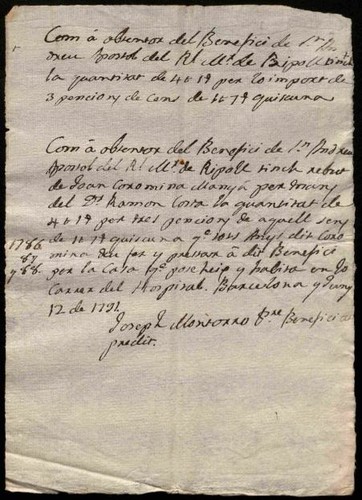 Com â obtentor del Benefici de Sn An
dreu Apostol del Rl. Mr. de Ripoll tinch
la quantitat de 4 ll 1 s per lo import de
3 pencions de cens de 1 ll 7 s quiscuna
Com â obtentor del Benefici de Sn Andreu
Apostol del Rl. Mr. de Ripoll tinch rebut
de Joan Coromina Manyá per mans
del Dr. Ramon Costa la quantitat de
4 ll 1 s per tres pencions de aquell cens
1786 de 1 ll 7 s quiscuna qe. tots Anys dit Coro
87 mina deu fer y prestar â dit Benefici
y 88. per la Casa qe. posseheix y habita en lo
Carrer del Hospital. Barcelona y Juny
12 de 1791.
Joseph Monsorro Pre Beneficiat
predit.